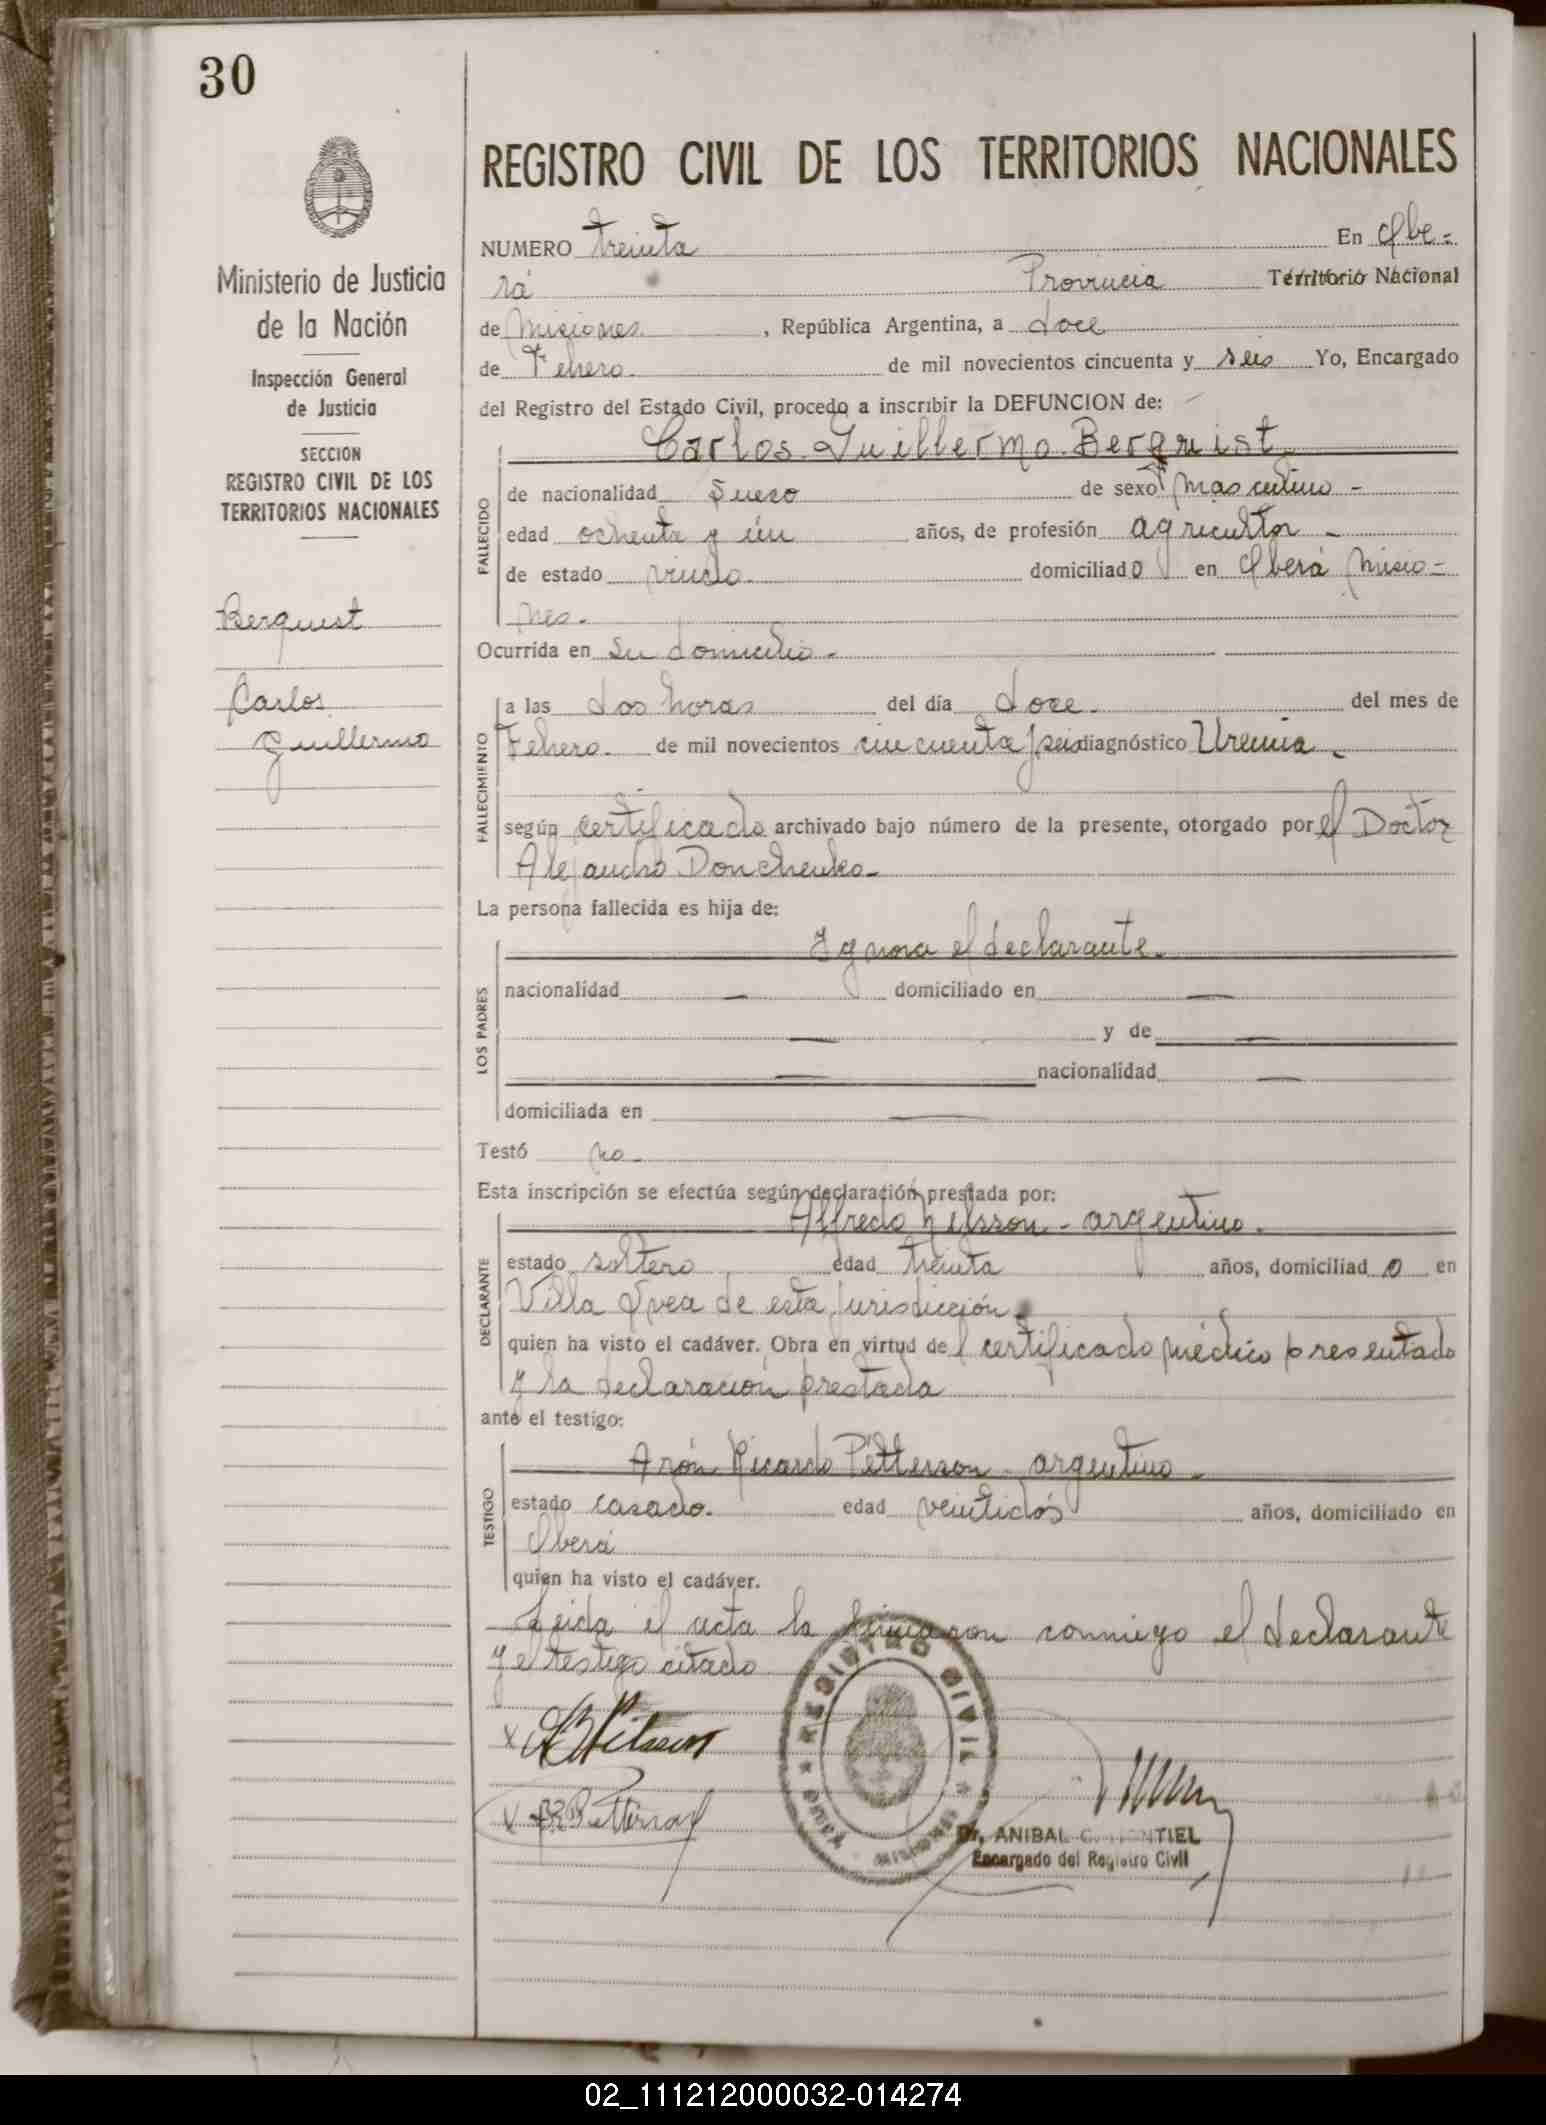 30
Ministerio de Justicia
de la Nación
Inspección General
de Justicia
SECCION
REGISTRO CIVIL DE LOS
TERRITORIOS NACIONALES
Berquist
Carlos
Guillermo
REGISTRO CIVIL DE LOS TERRITORIOS NACIONALES
NUMERO treinta En Obe-
rá Provincia Territorio Nacional
de Misiones, República Argentina, a doce
de Febrero. de mil novecientos cincuenta y seis Yo, Encargado
del Registro del Estado Civil, procedo a inscribir la DEFUNCION de:
Carlos Guillermo Berquist
FALLECIDO
de nacionalidad Sueco de sexo masculino -
edad ochenta y ún años, de profesión agricultor -
de estado viudo. domiciliado en Oberá Misio-
nes.
Ocurrida en su domicilio.
FALLECIMIENTO
a las dos horas del día doce. del mes de
Febrero. de mil novecientos cincuenta y seis diagnóstico Uremia.
según certificado archivado bajo número de la presente, otorgado por el Doctor
Alejandro Donchenko-
La persona fallecida es hija de:
LOS PADRES
Ignora el declarante.
nacionalidad — domiciliado en —
— y de —
— nacionalidad —
domiciliada en —
Testó no.
Esta inscripción se efectúa según declaración prestada por:
DECLARANTE
Alfredo Nilsson - argentino.
estado soltero edad treinta años, domiciliado en
Villa Svea de esta jurisdicción.
quien ha visto el cadáver. Obra en virtud del certificado médico presentado
y la declaración prestada
ante el testigo:
TESTIGO
Arón Ricardo Petterson - argentino -
estado casado. edad veintidós años, domiciliado en
Oberá
quien ha visto el cadáver.
Leida el acta la firmaron conmigo el declarante
y el testigo citado
REGISTRO CIVIL
MISIONES
Dr. ANIBAL
Encargado del Registro Civil
02_111212000032-014274